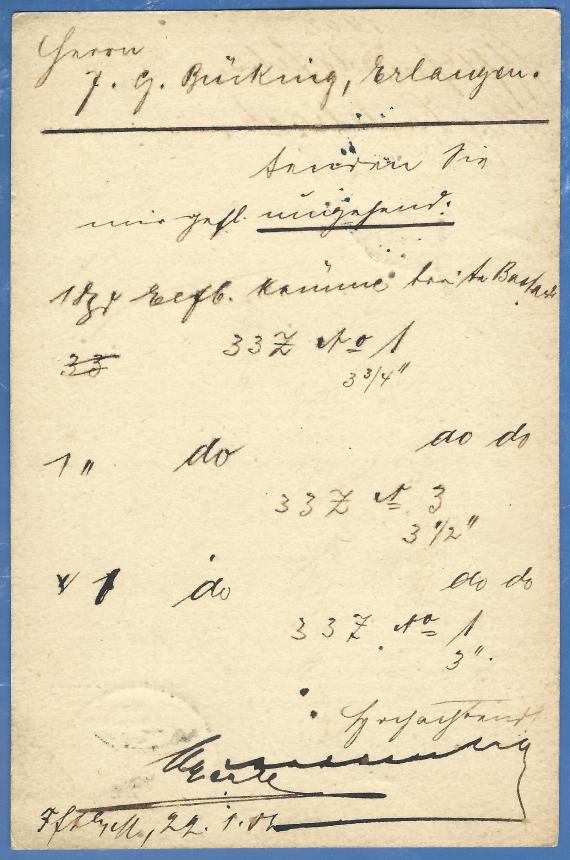 Herrn
J. G. Bücking, Erlangen.
Senden Sie
mir gefl. umgehend:
1 Dzd Elfb. Kämme breite
33Z No 1
33
3 3/4"
1 " do do do
33Z No 3
3 1/2"
1 do do do
33Z No 1
3".
Hochachtend
22. 1. 82